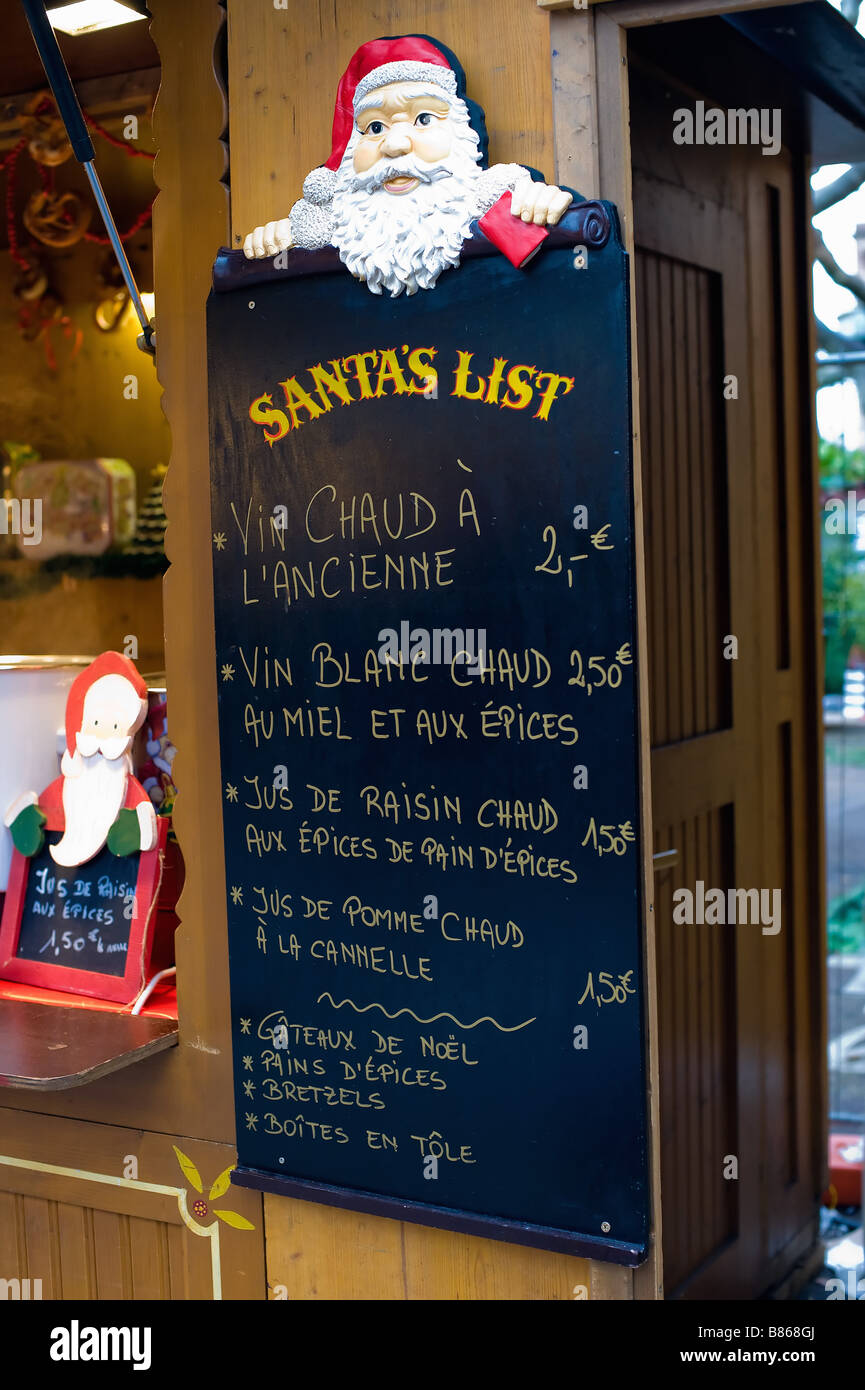 SANTA'S LIST
* VIN CHAUD À
L'ANCIENNE 2,-€
* VIN BLANC CHAUD 2,50€
AU MIEL ET AUX ÉPICES
* JUS DE RAISIN CHAUD
AUX ÉPICES DE PAIN D'ÉPICES 1,50€
* JUS DE POMME CHAUD
À LA CANNELLE
1,50€
* GÂTEAUX DE NOËL
* PAINS D'ÉPICES
* BRETZELS
* BOÎTES EN TÔLE
JUS DE RAISIN
AUX ÉPICES
1,50€
alamy
Image ID: B868GJ
www.alamy.com